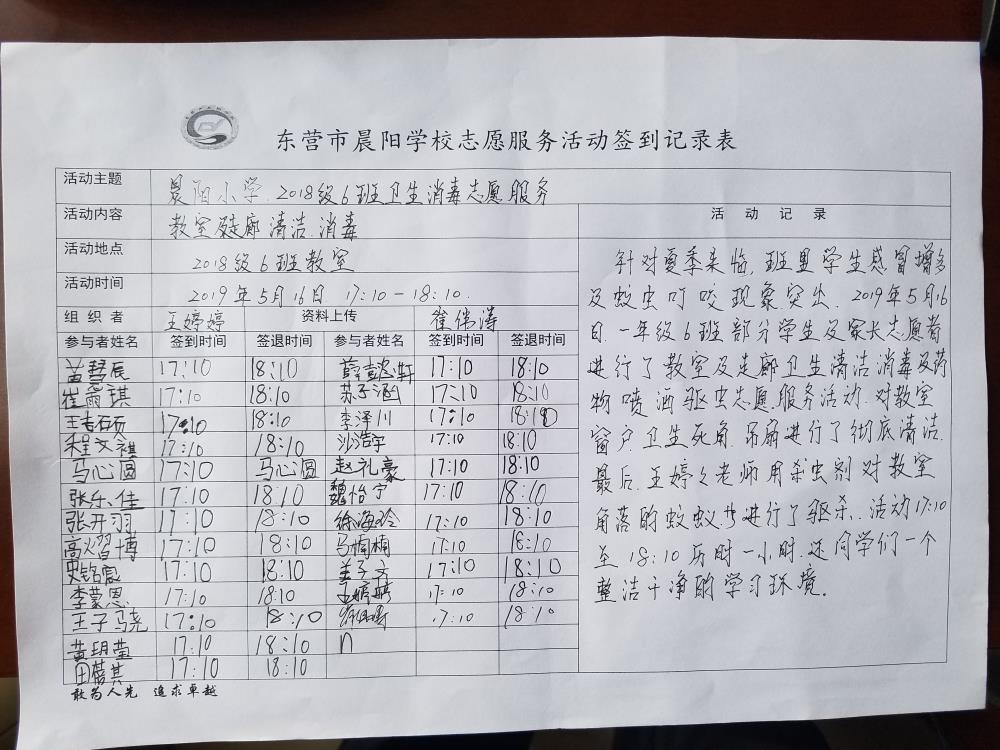 东营市晨阳学校志愿服务活动签到记录表
活动主题 晨阳小学.2018级6班卫生消毒志愿服务
活动内容 教室及走廊清洁.消毒
活动地点 2018级6班教室
活动时间 2019年5月16日 17:10-18:10.
组织者 王婷婷 资料上传 崔伟涛
参与者姓名 签到时间 签退时间 参与者姓名 签到时间 签退时间
苗彗辰 17:10 18:10 17:10 18:10
崔爾琪 17:10 18:10 苏子涵 17:10 18:10
17:10 18:10 李泽川 17:10 18:10
程文祺 17:10 18:10 沙浩宇 17:10 18:10
马心圆 17:10 马心圆 赵礼豪 17:10 18:10
张乐佳 17:10 18:10 魏怡宁 17:10 18:10
张开羽 17:10 18:10 徐海玲 17:10 18:10
高熠博 17:10 18:10 马楠楠 17:10 18:10
史铭震 17:10 18:10 孟子文 17:10 18:10
李蒙恩 17:10 18:10 17:10 18:10
王子骁 17:10 18:10 17:10 18:10
黄玥莹 17:10 18:10 n
田蕗其 17:10 18:10
敢为人先 追求卓越
活动记录
针对夏季来临,班里学生感冒增多
及蚊虫叮咬现象突出.2019年5月16
日.一年级6班部分学生及家长志愿者
进行了教室及走廊卫生清洁消毒及药
物喷洒驱虫志愿服务活动.对教室
窗户.卫生死角.吊扇进行了彻底清洁.
最后.王婷々老师用杀虫剂对教室
角落的蚊蚁.进行了驱杀.活动17:10
至18:10历时一小时.还同学们一个
整洁干净的学习环境.